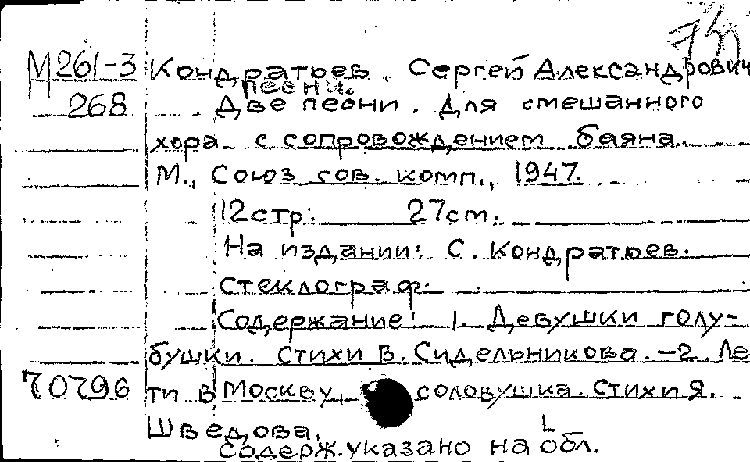 М261-3 Кондратьев. Сергей Александрович
песни.
268 Две песни. Для смешанного
хора с сопровождением баяна.
М., Союз сов. комп., 1947.
12 стр. 27 см.
На издании: С. Кондратьев.
Стеклограф.
Содержание: 1. Девушки голу-
бушки. Стихи В. Сидельникова. -2. Ле
70796 ти в Москву соловушка. Стихи Я.
Шведова.
содерж. указано на обл.